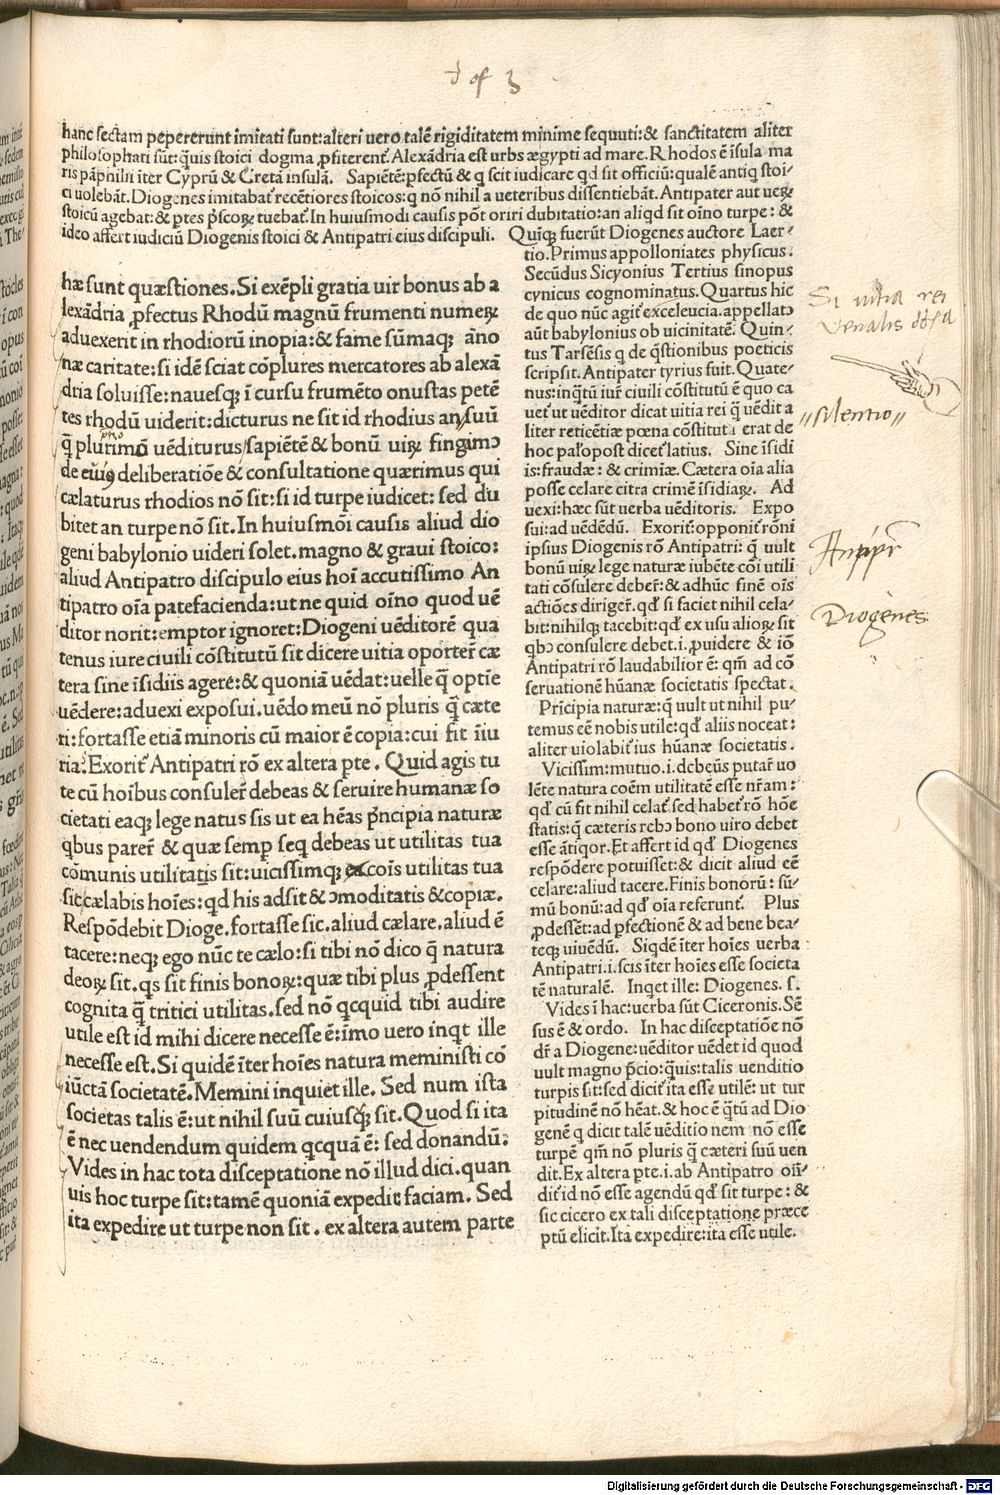 hanc sectam pepererunt imitati sunt:alteri uero talē rigiditatem minime sequuti:& sanctitatem aliter
philosophati sūt:quis stoici dogma ꝓfiterent᷑.Alexādria est urbs ægypti ad mare.Rhodos ē isula ma
ris pāphilii iter Cyprū & Cretā insulā. Sapiētē:pfectū & q scit iudicare qd sit officiū:qualē antiq stoi⸗
ci uolebāt.Diogenes imitabat᷑ recētiores stoicos:q nō nihil a ueteribus dissentiebāt.Antipater aut ueꝝ
stoicū agebat:& ptes pscoꝝ tuebat᷑.In huiusmodi causis pōt oriri dubitatio:an aliqd sit oīno turpe:&
ideo affert iudiciū Diogenis stoici & Antipatri eius discipuli. Quīqꝫ fuerūt Diogenes auctore Laer⸗
tio.Primus appolloniates physicus.
Secūdus Sicyonius Tertius sinopus
cynicus cognominatus.Quartus hic
de quo nūc agit᷑ exceleucia.appellatꝰ
aūt babylonius ob uicinitatē. Quin⸗
tus Tarsēsis q de q̄stionibus poeticis
scripsit.Antipater tyrius fuit.Quate⸗
nus:inq̄tū iuř ciuili cōstitutū ē quo ca
uet᷑ ut uēditor dicat uitia rei q̄ uēdit a
liter reticētiæ pœna cōstitut i erat de
hoc paſopost dicet᷑ latius. Sine īsidi
is:fraudæ:& crimīæ.Cætera oīa alia
posse celare citra crimē īsidiaꝝ. Ad
uexi:hæc sūt uerba uēditoris. Expo
sui:ad uēdēdū. Exorit᷑:opponit᷑ rōni
ipsius Diogenis rō Antipatri: q̄ uult
bonū uiꝝ lege naturæ iubēte coī utili
tati cōsulere deber̄:& adhuc sinē oīs
actiōes diriger̄.qđ si faciet nihil cela⸗
bit:nihilqꝫ tacebit:qđ ex usu alioꝝ sit
qbꝰ consulere debet.i.ꝓuidere & iō
Antipatri rō laudabilior ē: qm̄ ad cō
seruationē hūanæ societatis spectat.
Pricipia naturæ:q̄ uult ut nihil pu⸗
temus eē nobis utile:qđ aliis noceat:
aliter uiolabit᷑ ius hūanæ societatis.
Vicissim:mutuo.i.debeūs putar̄ uo
lēte natura coēm utilitatē esse nr̄am:
qđ cū fit nihil celat᷑ sed habet᷑ rō hōe
statis:q̄ cæteris rebꝰ bono uiro debet
esse ātiqor.Et affert id qđ Diogenes
respōdere potuisset:& dicit aliud eē
celare:aliud tacere.Finis bonorū: sū⸗
mū bonū:ad qđ oīa referunt᷑. Plus
ꝓdesset:ad pfectionē & ad bene bea⸗
teqꝫ uiuēdū. Siqdē iter hoīes uerba
Antipatri.i.scis iter hoīes esse societa
tē naturalē. Inqet ille: Diogenes. s.
Vides ī hac:uerba sūt Ciceronis.Sē
sus ē & ordo. In hac disceptatiōe nō
dr̄ a Diogene:uēditor uēdet id quod
uult magno pcio:quis:talis uenditio
turpis sit:sed dicit᷑ ita esse utilē: ut tur
pitudinē nō hēat.& hoc ē q̄tū ad Dio
genē q dicit talē uēditio nem nō esse
turpē qm̄ nō pluris q̄ cæteri suū uen
dit.Ex altera pte.i.ab Antipatro oīn⸗
dit᷑ id nō esse agendū qđ sit turpe: &
sic cicero ex tali disceptatione præce
ptū elicit.Ita expedire:ita esse utile.
hæ sunt quæstiones.Si exēpli gratia uir bonus ab a
lexādria ꝓfectus Rhodū magnū frumenti numeꝝ
aduexerit in rhodiorū inopia:& fame sūmaqꝫ āno
næ caritate:si idē sciat cōplures mercatores ab alexā
dria soluisse:nauesqꝫ ī cursu frumēto onustas petē
tes rhodū uiderit:dicturus ne sit id rhodius an suū
q̄ plurimō uēditurus/sapiētē & bonū uiꝝ fingimꝰ
de eiuſ deliberatiōe & consultatione quærimus qui
cælaturus rhodios nō sit:si id turpe iudicet: sed du
bitet an turpe nō sit.In huiusmōi causis aliud dio
geni babylonio uideri solet.magno & graui stoico:
aliud Antipatro discipulo eius hoī accutissimo An
tipatro oīa patefacienda:ut ne quid oīno quod uē
ditor norit:emptor ignoret:Diogeni uēditorē qua
tenus iure ciuili cōstitutū sit dicere uitia oporter̄ cæ
tera sine īsidiis agere:& quoniā uēdat:uelle q̄ optīe
uēdere:aduexi exposui.uēdo meū nō pluris q̄ cæte
ri:fortasse etiā minoris cū maior ē copia:cui fit iīu
ria:Exorit᷑ Antipatri rō ex altera pte. Quid agis tu
te cū hoībus consuler̄ debeas & seruire humanæ so
cietati eaqꝫ lege natus sis ut ea hēas pncipia naturæ
qbus parer̄ & quæ semp seq debeas ut utilitas tua
cōmunis utilitatis sit:uicissimqꝫ coīs utilitas tua
sit:cælabis hoīes:qd his adsit & ꝯmoditatis &copiæ.
Respōdebit Dioge.fortasse sic.aliud cælare.aliud ē
tacere:neqꝫ ego nūc te cælo:si tibi nō dico q̄ natura
deoꝝ sit.qs sit finis bonoꝝ:quæ tibi plus ꝓdessent
cognita q̄ tritici utilitas.sed nō qcquid tibi audire
utile est id mihi dicere necesse ē:īmo uero inqt ille
necesse est.Si quidē iter hoīes natura meministi cō
iūctā societatē.Memini inquiet ille. Sed num ista
societas talis ē:ut nihil suū cuiusqꝫ sit.Quod si ita
ē nec uendendum quidem qcquā ē: sed donandū:
Vides in hac tota disceptatione nō illud dici.quan
uis hoc turpe sit:tamē quoniā expedit faciam. Sed
ita expedire ut turpe non sit. ex altera autem parte
Si uitia rei
Venalis
silentio
Antipr̄
Diogenes
Digitalisierung gefördert durch die Deutsche Forschungsgemeinschaft - DFG